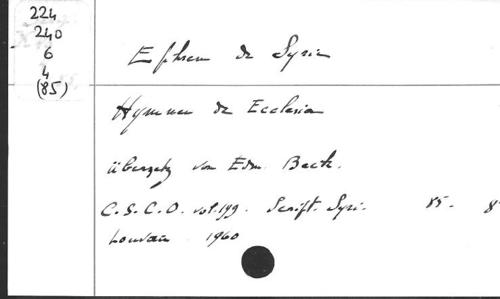 224
240
6
4
(85)
Ephrem de Syrie
Hymnen de Ecclesia
übersetz von Edm. Beck.
C. S. C. O. vol. 199. Script. Syri. 85.
Louvain 1960